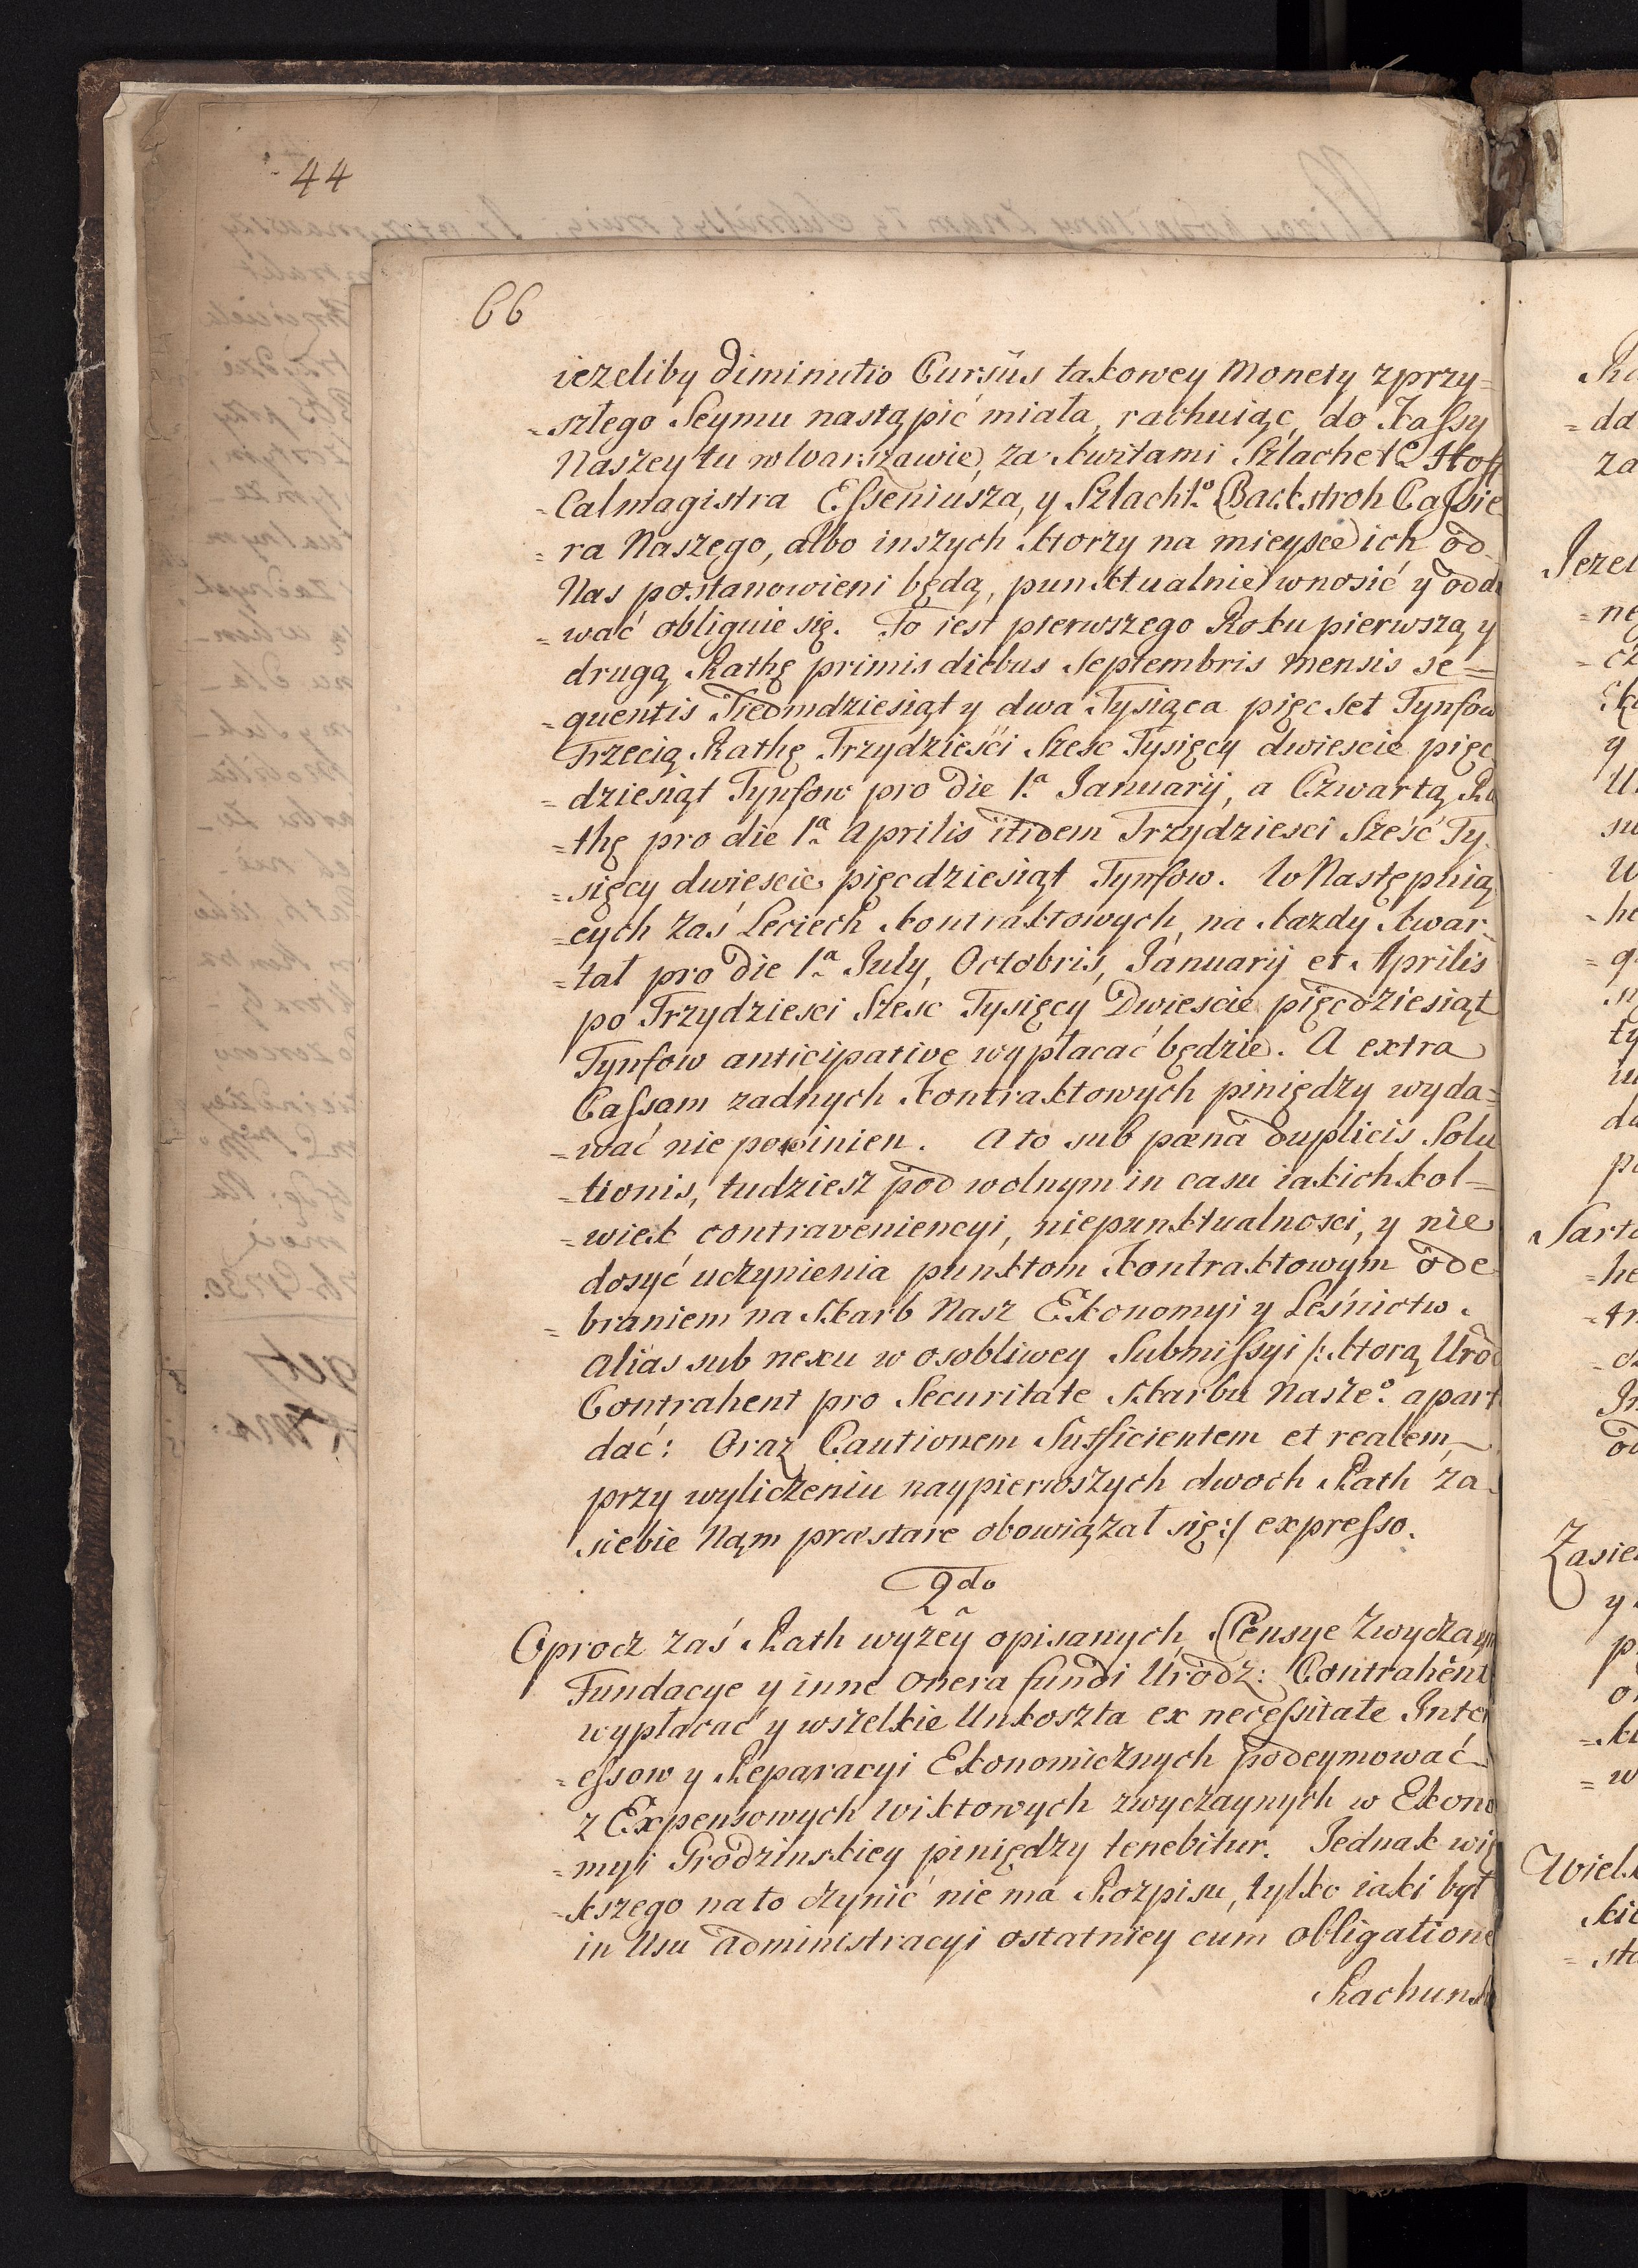 44
66
iezeliby diminutio Cursûs takowey Monety zprzy=
=szłego Seymu nastąpić miała, rachuiąc, do Kassy
Naszey tu w Warszawie, za kwitami Szlachetº Hoff
=Calmagistra Esseniusza, y Szlachtº Backstroh Cassie
=ra Naszego, albo inszych ktorzy na mieysce ich od
Nas postanowieni będą, punktualnie wnosić y odda
=wać obliguie się. To iest pierwszego Roku pierwszą y
drugą Rathę primis diebus Septembris mensis se=
=quentis Siedmdziesiąt y dwa Tysiąca pięc set Tynfow
Trzecią Rathę Trzydzieści Szesc Tysięcy dwiescie pięc
=dziesiąt Tynfow pro die 1ª Januarij, a Czwartą Ra
=thę pro die 1ª Aprilis itidem Trzydziesci Sześć Ty
=sięcy dwiescie pięcdziesiąt Tynfow. W Następuią
=cych zaś Leciech kontraktowych, na kazdy kwar=
=tał pro die 1ª July, Octobris, Januarij et Aprilis
po Trzydziesci Szesc Tysięcy Dwiescie pięcdziesiąt
Tynfow anticipative wypłacać będzie. A extra
Cassam zadnych kontraktowych piniędzy wyda=
=wać nie powinien. A to sub pœna duplicis Solu
=tionis, tudziesz pod wolnym in casu iakichkol=
=wiek contraveniencyi, niepunktualnosci, y nie
dosyć uczynienia punktom kontraktowym ode
=braniem na Skarb Nasz Ekonomyi y Leśnictw.
alias sub nexu w osobliwey Submissyi /: ktorą Urod
Contrahent pro Securitate Skarbu Naszeº apart
dać: Oraz Cautionem Sufficientem et realem,
przy wyliczeniu naypierwszych dwoch Rath za
siebie Nąm præstare obowiązał się :/ expresso.
2do
Oprocz zaś Rath wyżey opisanych, Pensye Zwyczayn
Fundacye y inne onera fundi Urodz: Contrahent
wypłacać y wszelkie Unkoszta ex necessitate Inter
=essow y Reparacyi Ekonomicznych podeymować
z Expensowych Wiktowych zwyczaynych w Ekono
=myi Grodzinskiey piniędzy tenebitur. Jednak wię
=kszego na to czynić nie ma Rozpisu, tylko iaki był
in Usu administracyi ostatniey cum obligatione
Rachunk